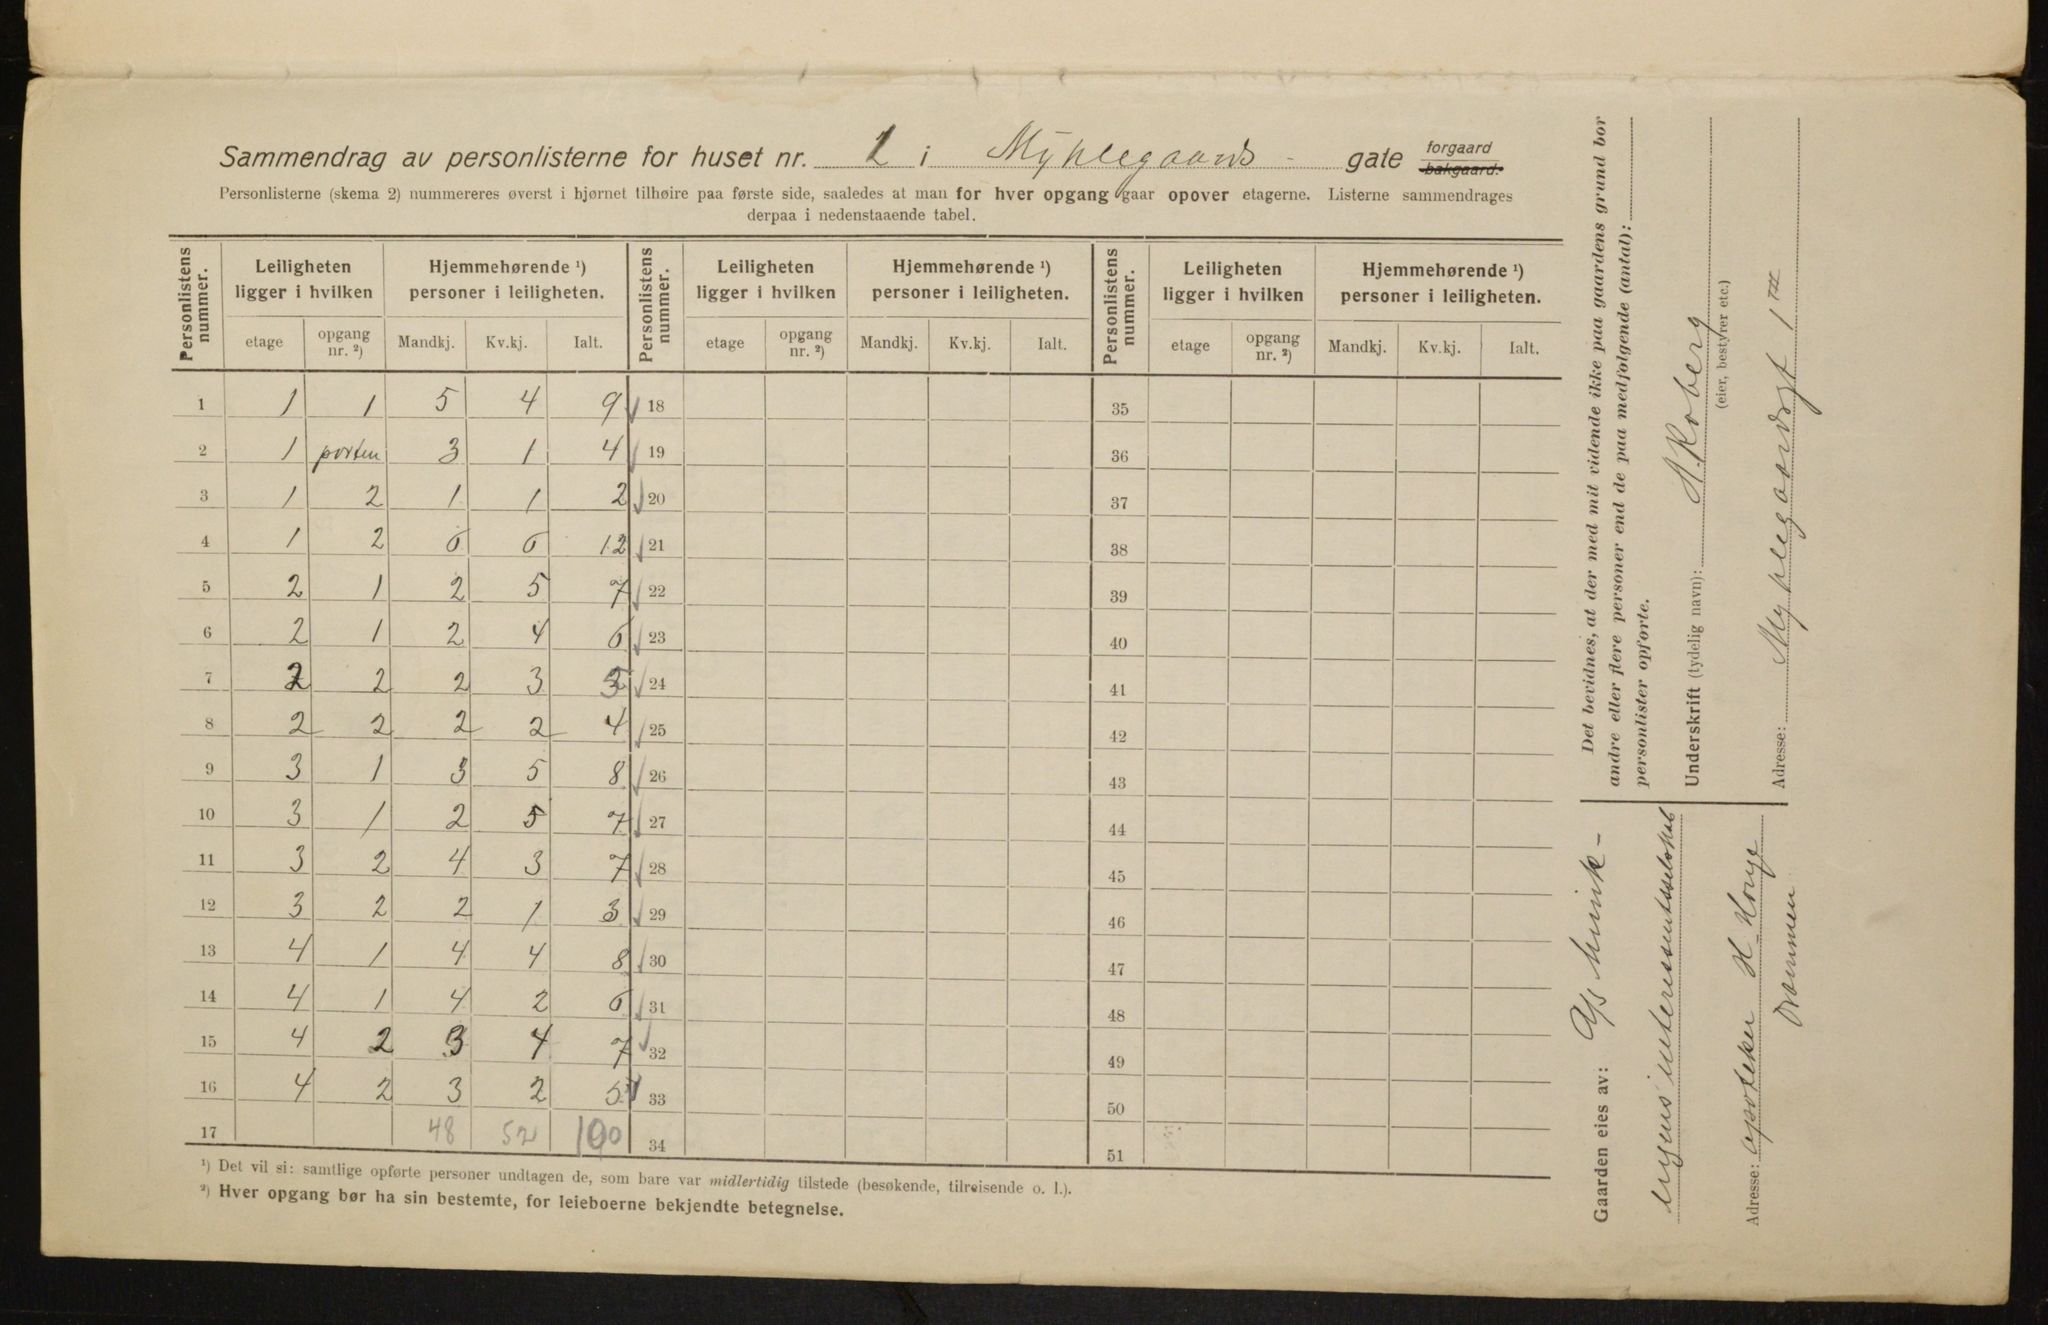 Sammendrag av personlisterne for huset nr. 1 i Myhlegaards - gate forgaard bakgaard.
Personlisterne (skema 2) nummereres øverst i hjørnet tilhøire paa første side, saaledes at man for hver opgang gaar opover etagerne. Listerne sammendrages
derpaa i nedenstaaende tabel.
Personlistens nummer. Leiligheten ligger i hvilken Hjemmehørende ¹) personer i leiligheten. Personlistens nummer. Leiligheten ligger i hvilken Hjemmehørende ¹) personer i leiligheten. Personlistens nummer. Leiligheten ligger i hvilken Hjemmehørende ¹) personer i leiligheten.
etage opgang nr. ²) Mandkj. Kv.kj. Ialt. etage opgang nr. ²) Mandkj. Kv.kj. Ialt. etage opgang nr. ²) Mandkj. Kv.kj. Ialt.
1 1 1 5 4 9 18 35
2 1 porten 3 1 4 19 36
3 1 2 1 1 2 20 37
4 1 2 6 6 12 21 38
5 2 1 2 5 7 22 39
6 2 1 2 4 6 23 40
7 2 2 2 3 5 24 41
8 2 2 2 2 4 25 42
9 3 1 3 5 8 26 43
10 3 1 2 5 7 27 44
11 3 2 4 3 7 28 45
12 3 2 2 1 3 29 46
13 4 1 4 4 8 30 47
14 4 1 4 2 6 31 48
15 4 2 3 4 7 32 49
16 4 2 3 2 5 33 50
17 48 52 100 34 51
¹) Det vil si: samtlige opførte personer undtagen de, som bare var midlertidig tilstede (besøkende, tilreisende o. l.).
²) Hver opgang bør ha sin bestemte, for leieboerne bekjendte betegnelse.
Det bevidnes, at der med mit vidende ikke paa gaardens grund bor
andre eller flere personer end de paa medfølgende (antal):
personlister opførte.
Underskrift (tydelig navn): Roberg
(eier, bestyrer etc.)
Adresse: Myhlegaardsgt 1
Gaarden eies av: A/s Munk-
interessentselskab
Adresse: apoteker H. Honge
Drammen